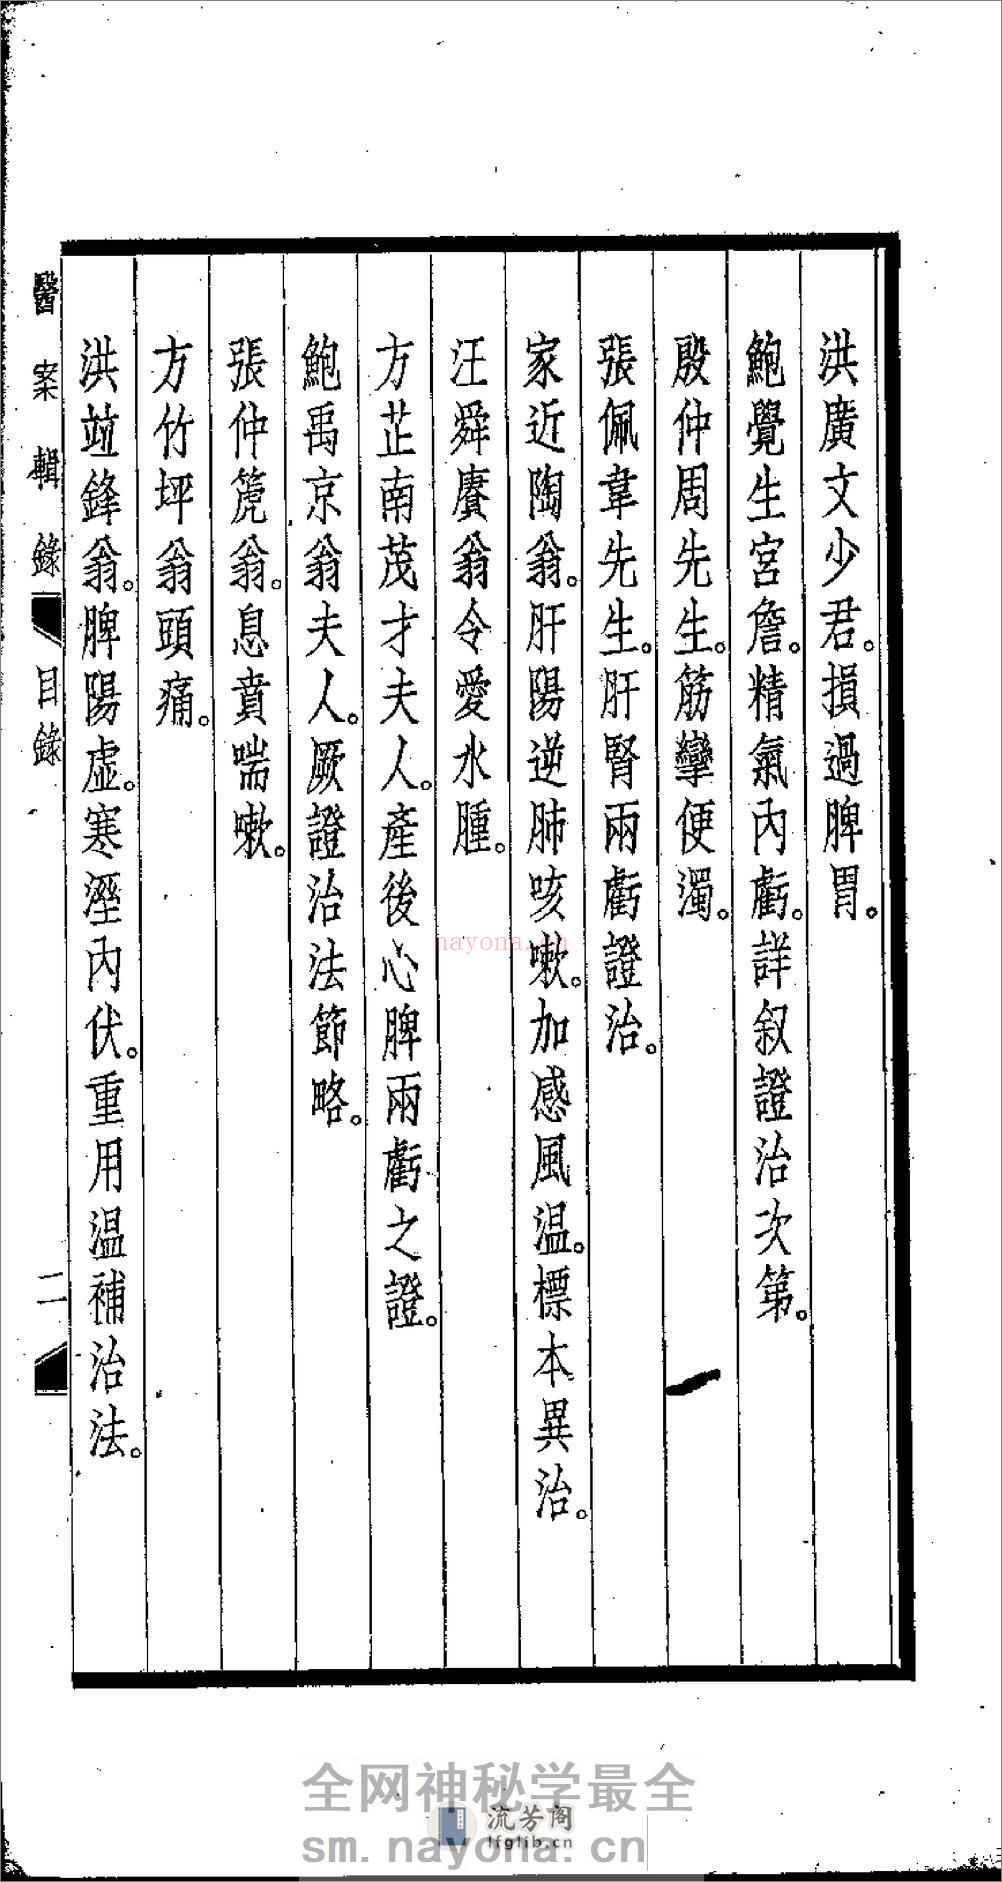 洪廣文少君。損過脾胃。
鮑覺生宮詹。精氣內虧。詳叙證治次第。
殷仲周先生。筋攣便濁。
張佩韋先生。肝腎兩虧證治。
家近陶翁。肝陽逆肺咳嗽。加感風温。標本異治。
汪舜賡翁令愛水腫。
方芷南茂才夫人。產後心脾兩虧之證。
鮑禹京翁夫人。厥證治法節略。
張仲篪翁。息賁喘嗽。
方竹坪翁頭痛。
洪竝鋒翁。脾陽虛。寒溼內伏。重用温補治法。
醫案輯錄 目錄 二
nayona.cn
全网神秘学最全
流芳阁
lfglib.cn
sm.nayona.cn